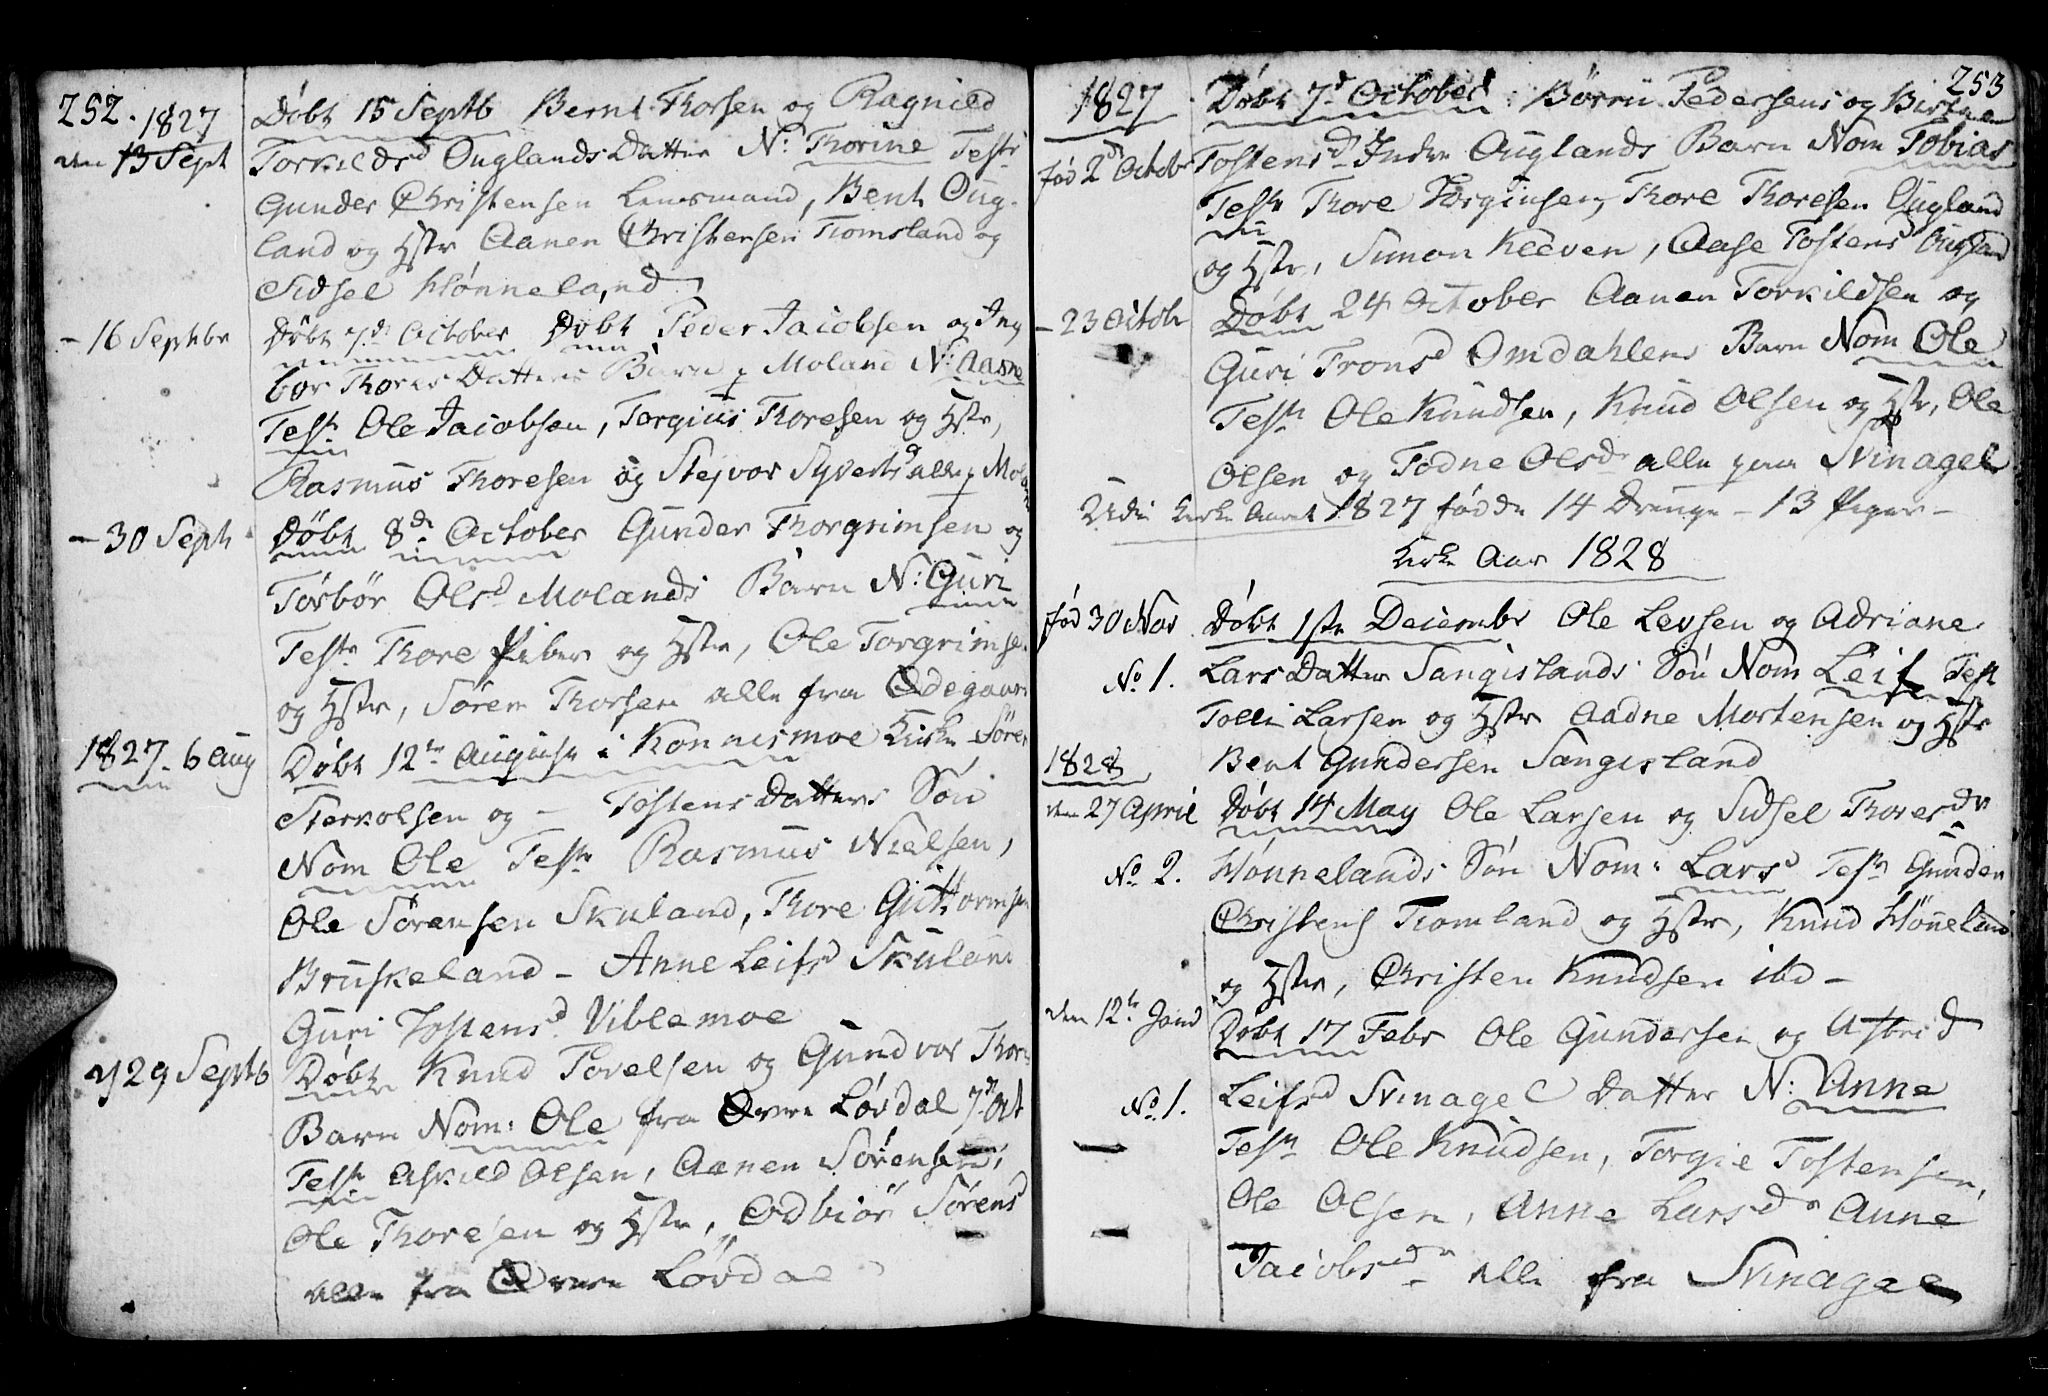 252. 1827
den 13 Sept
Døbt 15 Septb Bernt Thorsen og Ragnild
Torkildsd Ouglands Datter N: Thorine Test
Gunder Christensen Lensmand, Bent Oug-
land og Hstr Aanen Christensen Tiomsland og
Sidsel Hønneland
- 16 Septbr
Døbt 7de October Døbt Peder Jacobsen og Ing
bor Thores Datters Barn p Moland N: Aasne
Test Ole Jacobsen, Torgius Thoresen og Hstr,
Rasmus Thoresen og Stejvor Syvertsd alle p Mol
- 30 Sept
Døbt 8de October Gunder Thorgrimsen og
Torbør Olsd Molands Barn N: Guri
Teste Thore Piber og Hstr, Ole Torgrimse
og Hstr, Søren Thorsen alle fra Ødegaar
1827. 6 Aug
Døbt 12te August i Konnismoe Kirke Søren
Sterkolsen og - Tostens Datters Søn
Nom Ole Test Rasmus Nielsen,
Ole Sørensen Skuland, Thore Guttormsen
Bruskeland - Anne Leifsd Skuland
Guri Tostensd Viblemoe
29 Septb
Døbt Knud Tovelsen og Gundvor Thor
Barn Nom: Ole fra Øvre Løvdal 7de Oct
Test Askild Olsen, Aanen Sørensen,
Ole Thoresen og Hstr, Odbiør Sørensd
alle fra Øvre Løvdal
253
1827
fød 2d Octobr
Døbt 7d October: Børru Pedersens og
Tostensd Indre Ouglands Barn Nom Tobias
Test Thore Torginsen, Thore Thoresen Ougland
og Hstr, Simon Kleven, Aase Tostensd Ougland
- 23 Octobr
Døbt 24 October Aanen Torkildsen og
Guri Tronsd Omdahlens Barn Nom Ole
Test Ole Knudsen, Knud Olsen og Hstr, Ole
Olsen og Todne Olsdr alle paa Svinagel
Udi Kirke Aaret 1827 fødde 14 Drenge - 13 Piger -
Kirke Aar 1828
fød 30 Nov
No 1.
Døbt 1ste Decembr Ole Levsen og Adriane
Lars Datter Sangislands Søn Nom Leif Test
Tolli Larsen og Hstr Aadne Mortensen og Hstr
Bent Gundersen Sangisland
1828
den 27 April
No 2.
Døbt 14 May Ole Larsen og Sidsel Thoresdr
Hønnelands Søn Nom: Lars Test Gunder
Christens Tiomland og Hstr, Knud Hønneland
og Hstr, Christen Knudsen ibd -
den 12te Jand
No 1.
Døbt 17 Febr Ole Gundersen og Astbrid
Leifsd Svinagel Datter N: Anne
Test Ole Knudsen, Torgie Tostensen,
Ole Olsen, Anne Larsdr Anne
Jacobsdr alle fra Svinagel